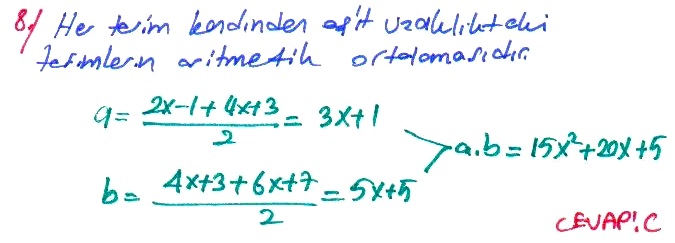 8-) Her terim kendinden eşit uzaklıktaki
terimlerin aritmetik ortalamasıdır.
a = \frac{2x-1+4x+3}{2} = 3x+1
b = \frac{4x+3+6x+7}{2} = 5x+5
a.b = 15x²+20x+5
CEVAP: C